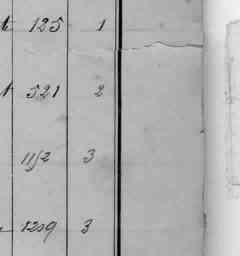 t 125 1
t 521 2
11/2 3
1209 3